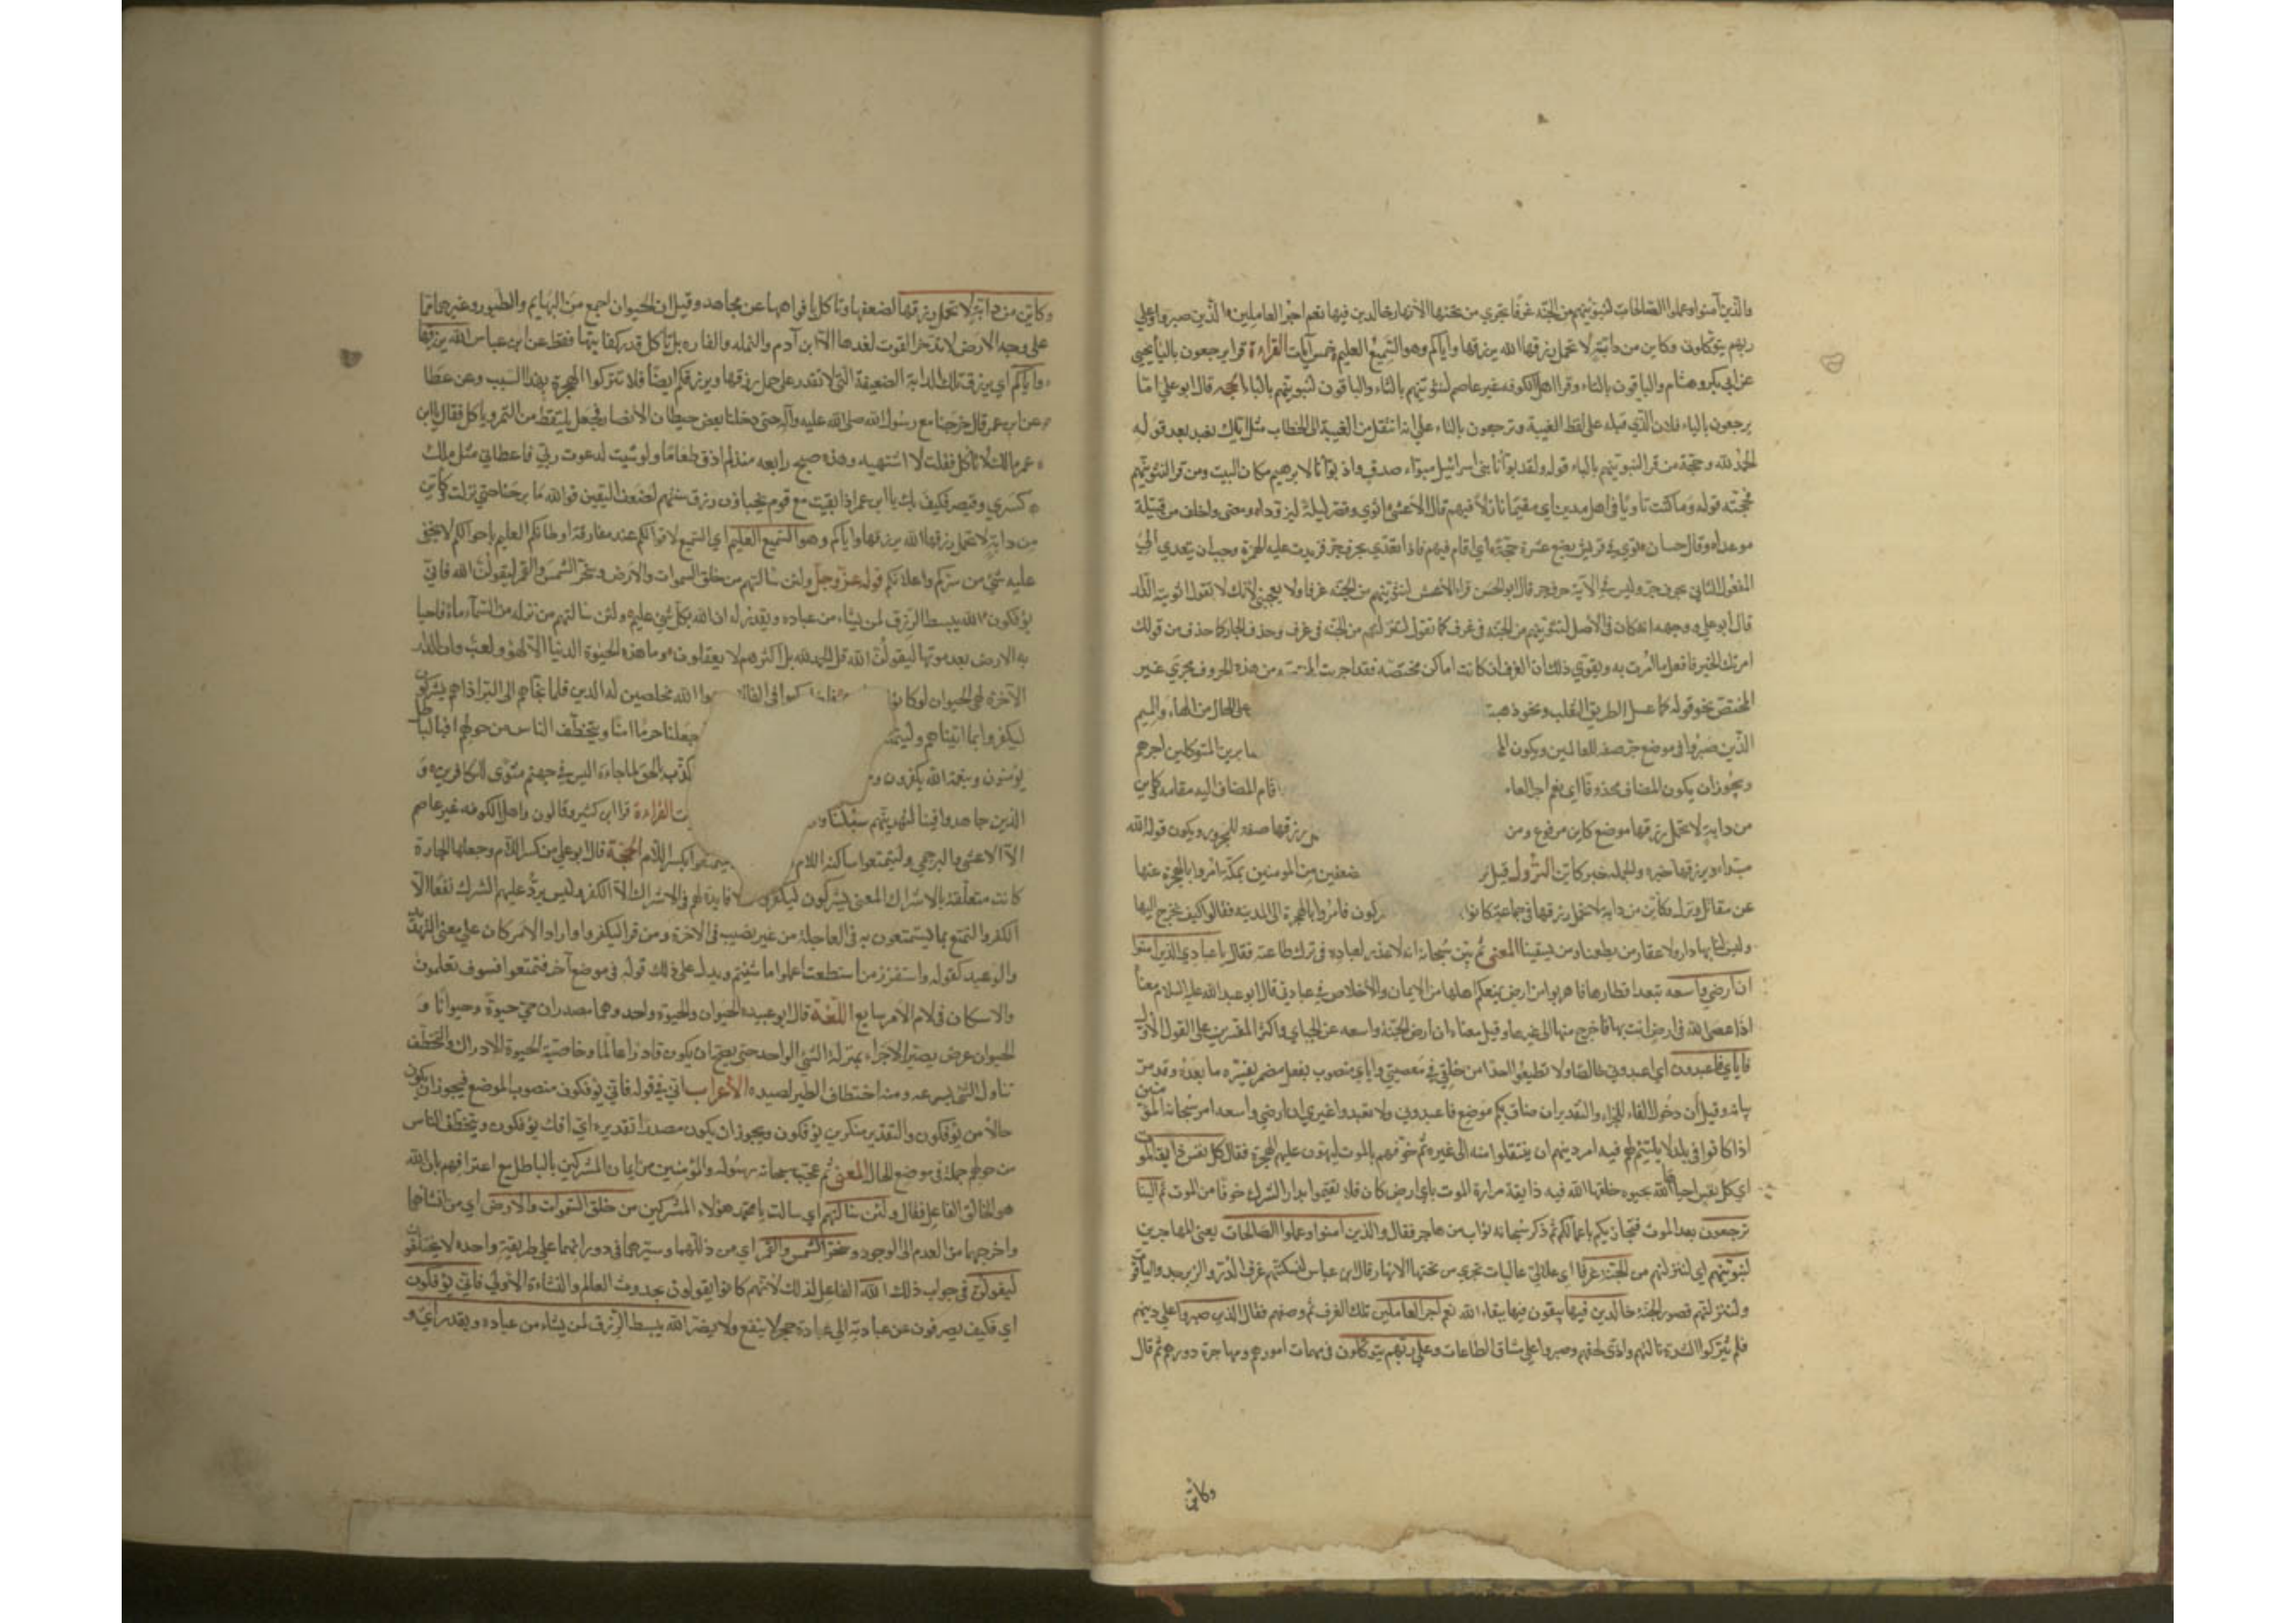 والذين آمنوا وعملوا الصالحات لنبوئنهم من الجنة غرفا تجري من تحتها الانهار خالدين فيها نعم اجر العاملين الذين صبروا وعلى
ربهم يتوكلون وكاين من دابة لا تحمل رزقها الله يرزقها واياكم وهو السميع العليم خمس آيات القراءة قرا يرجعون بالياء يحيى
عن ابي بكر وهشام والباقون بالتاء وقرا اهل الكوفه غير عاصم لنثوينهم بالثاء والباقون لنبوئنهم بالباء الحجه قال ابو علي اما
يرجعون بالياء فلان الذي قبله على لفظ الغيبة وترجعون بالتاء على انه انتقل من الغيبة الى الخطاب مثل اياك نعبد بعد قوله
الحمد لله وحجة من قرا لنبوئنهم بالباء قوله ولقد بوأنا بني اسرائيل مبوأ صدق واذ بوأنا لابرهيم مكان البيت ومن قرا لنثوينهم
فحجته قوله وما كنت ثاويا في اهل مدين اي مقيما نازلا فيهم قال الاعشى اثوى وقصر ليلة ليزودا ومضى واخلف من قتيلة
موعدا وقال حسان ثوى في قريش بضع عشرة حجة اي اقام فيهم فاذا تعدى بحرف جر فزيدت عليه الهمزة وجب ان يتعدى الى
المفعول الثاني بحرف جر وليس في الآية حرف جر قال ابو الحسن قرا الاعمش لنثوينهم من الجنة غرفا ولا يعجبني لانك لا تقول اثويته الدار
قال ابو علي ووجهه انه كان في الاصل لنثوينهم من الجنة في غرف كما تقول لننزلنهم من الجنة في غرف وحذف الجار كما حذف من قولك
امرتك الخير فافعل ما امرت به ويقوي ذلك ان الغرف وان كانت اماكن مختصة فقد اجريت المختصه من هذه الحروف مجرى غير
المختص نحو قوله كما عسل الطريق الثعلب ونحو ذهبت على الحال من الهاء والميم
الذين صبروا في موضع جر صفه للعالمين ويكون صابرين المتوكلين اجرهم
ويجوز ان يكون المضاف محذوفا اي نعم اجر العاملين اقام المضاف اليه مقامه كاين
من دابة لا تحمل رزقها موضع كاين مرفوع ومن رزقها صفه للمجرور ويكون قوله الله
مبتدا ويرزقها خبره والجملة خبر كاين النزول قيل ضعفين من المومنين بمكة امروا بالهجرة عنها
عن مقاتل ونزل وكاين من دابة لا تحمل رزقها في جماعة كانوا فامروا بالهجرة الى المدينه فقالوا كيف نخرج اليها
وليس لنا بها دار ولا عقار من يطعمنا ومن يسقينا المعنى ثم بين سبحانه انه لا عذر لعباده في ترك طاعته فقال يا عبادي الذين امنوا
ان ارضي واسعه تبعد اقطارها فاهربوا من ارض يمنعكم اهلها من الايمان والاخلاص في عبادتي قال ابو عبد الله عليه السلام معناه
اذا عصي الله في ارض انت بها فاخرج منها الى غيرها وقيل معناه ان ارض الجنة واسعه عن الجبائي واكثر المفسرين على القول الاول
فاياي فاعبدون اي اعبدوني خالصا ولا تطيعوا احدا من خلقي في معصيتي واياي منصوب بفعل مضمر يفسره ما بعده وقد مر
بيانه وقيل ان دخول الفاء للجزاء والتقدير ان ضاق بكم موضع فاعبدوني ولا تعبدوا غيري ان ارضي واسعه امر سبحانه المؤمنين
اذا كانوا في بلد لا يلتئم لهم فيه امر دينهم ان ينتقلوا منه الى غيره ثم خوفهم بالموت ليهون عليهم الهجرة فقال كل نفس ذايقة الموت
اي كل نفس احياها الله بحيوه خلقها الله فيه ذايقة مرارة الموت باي ارض كان فلا تقيموا بدار الشرك خوفا من الموت ثم الينا
ترجعون بعد الموت فنجازيكم باعمالكم ثم ذكر سبحانه ثواب من هاجر فقال والذين امنوا وعملوا الصالحات يعني المهاجرين
لنبوئنهم اي لننزلنهم من الجنة غرفا اي علالي عاليات تجري من تحتها الانهار قال ابن عباس لنسكننهم غرف الدر والزبرجد والياقوت
ولننزلنهم قصور الجنة خالدين فيها يبقون فيها ببقاء الله نعم اجر العاملين تلك الغرف ثم وصفهم فقال الذين صبروا على دينهم
فلم يتركوا لشدة نالتهم واذى لحقهم وصبروا على مشاق الطاعات وعلى ربهم يتوكلون في مهمات امورهم ومهاجرة دورهم ثم قال
وكاين
وكاين من دابة لا تحمل رزقها لضعفها وتاكل بافواهها عن مجاهد وقيل ان الحيوان اجمع من البهايم والطيور وغيرها مما
على وجه الارض لا تدخر القوت لغدها الا ابن آدم والنمله والفاره بل تاكل قدر كفايتها فقط عن ابن عباس الله يرزقها
واياكم اي يرزق تلك الدابة الضعيفة التي لا تقدر على حمل رزقها ويرزقكم ايضا فلا تتركوا الهجرة بهذا السبب وعن عطا
عن ابن عمر قال خرجنا مع رسول الله صلى الله عليه وآله حتى دخلنا بعض حيطان الانصار فجعل يلتقط من التمر وياكل فقال يا ابن
عمر مالك لا تاكل فقلت لا اشتهيه وهذه صبح رابعه منذ لم اذق طعاما ولو شيت لدعوت ربي فاعطاني مثل ملك
كسرى وقيصر فكيف بك يا ابن عمر اذا بقيت مع قوم يخبئون رزق سنتهم لضعف اليقين فوالله ما برحنا حتى نزلت وكاين
من دابة لا تحمل رزقها الله يرزقها واياكم وهو السميع العليم اي السميع لاقوالكم عند مفارقة اوطانكم العليم باحوالكم لا يخفى
عليه شئ من سركم واعلانكم قوله عز وجل ولئن سالتهم من خلق السموات والارض وسخر الشمس والقمر ليقولن الله فانى
يؤفكون الله يبسط الرزق لمن يشاء من عباده ويقدر له ان الله بكل شئ عليم ولئن سالتهم من نزل من السماء ماء فاحيا
به الارض بعد موتها ليقولن الله قل الحمد لله بل اكثرهم لا يعقلون وما هذه الحيوة الدنيا الا لهو ولعب وان الدار
الآخرة لهي الحيوان لوكانوا ركبوا في الفلك الله مخلصين له الدين فلما نجاهم الى البر اذا هم يشركون
ليكفروا بما اتيناهم وليتمتعوا جعلنا حرما امنا ويتخطف الناس من حولهم افبالباطل
يؤمنون وبنعمة الله يكفرون كذب بالحق لما جاءه اليس في جهنم مثوى للكافرين و
الذين جاهدوا فينا لنهدينهم سبلنا القراءة قرا ابن كثير وقالون واهل الكوفه غير عاصم
الا الاعشى والبرجمي وليتمتعوا ساكنة اللام بكسر اللام الحجة قال ابو علي من كسر اللام وجعلها الجارة
كانت متعلقة بالاشراك المعنى يشركون ليكفروا لا فايدة لهم في الاشراك الا الكفر وليس يرد عليهم الشرك نفعا الا
الكفر والتمتع بما يستمتعون به في العاجلة من غير نصيب في الآخرة ومن قرا ليكفروا واراد الامر كان على معنى التهديد
والوعيد كقوله واستفزز من استطعت اعملوا ما شئتم ويدل على ذلك قوله في موضع آخر فتمتعوا فسوف تعلمون
والاسكان في لام الامر سايغ اللغة قال ابو عبيدة الحيوان والحيوة واحد وهما مصدران حيي حيوة وحيوانا و
الحيوان عرض يصير الاجزاء بمنزلة الشئ الواحد حتى يصح ان يكون قادرا عالما وخاصية الحيوة الادراك والتخطف
تناول الشئ بسرعه ومنه اختطاف الطير لصيده الاعراب انى في قوله فانى يؤفكون منصوب الموضع فيجوز ان يكون
حالا من يؤفكون والتقدير منكرين يؤفكون ويجوز ان يكون مصدرا تقديره اي افك يؤفكون ويتخطف الناس
من حولهم جملة في موضع الحال المعنى ثم عجب سبحانه رسوله والمؤمنين من ايمان المشركين بالباطل مع اعترافهم بان الله
هو الخالق الفاعل فقال ولئن سالتهم اي سالت يا محمد هؤلاء المشركين من خلق السموات والارض اي من انشاها
واخرجها من العدم الى الوجود وسخر الشمس والقمر اي من ذللهما وسيرهما في دورانهما على طريقة واحده لا يختلف
ليقولن في جواب ذلك الله الفاعل لذلك لانهم كانوا يقولون بحدوث العالم والنشاءة الاولى فانى يؤفكون
اي فكيف يصرفون عن عبادته الى عبادة حجر لا ينفع ولا يضر الله يبسط الرزق لمن يشاء من عباده ويقدر اي و